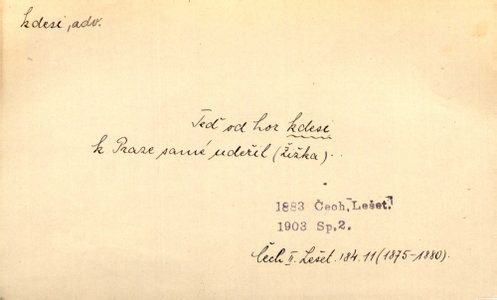 kdesi, adv.
Teď od hor kdesi
k Praze samé udeřil (Žižka).
1883 Čech, Lešet.
1903 Sp.2.
Čech II. Lešet. 184.11 (1875-1880).